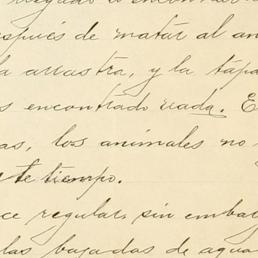 llegado a encontrar
después de matar al an
la arrastra, y la tapa
s encontrado nada. E
as, los animales no
este tiempo.
ce regular, sin embar
las bajadas de agua